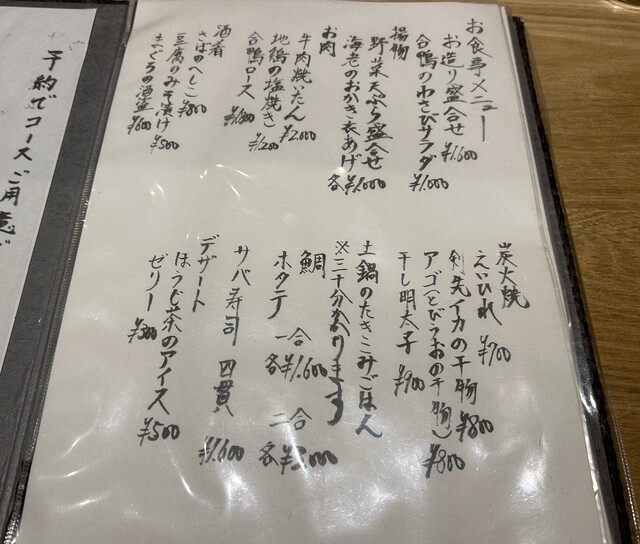 お食事メニュー
お造り盛合せ ¥1.600
合鴨のわさびサラダ ¥1.000
揚物
野菜天ぷら盛合せ
海老のおかき衣あげ 各¥1.000
お肉
牛肉焼いたん ¥2.000
地鶏の塩焼き ¥1.200
合鴨ロース ¥1.800
酒肴
さばのへしこ ¥800
豆腐のみそ漬け ¥500
まぐろの酒盗 ¥600
炭火焼
えいひれ ¥700
剣先イカの干物 ¥800
アゴ(とびうおの干物) ¥800
干し明太子 ¥900
土鍋のたきこみごはん
※三十分かかります
鯛
ホタテ 一合 各¥1.600 二合 各¥3.000
サバ寿司 四貫 ¥1.600
デザート
ほうじ茶のアイス ¥500
ゼリー ¥300
予約でコースご用意